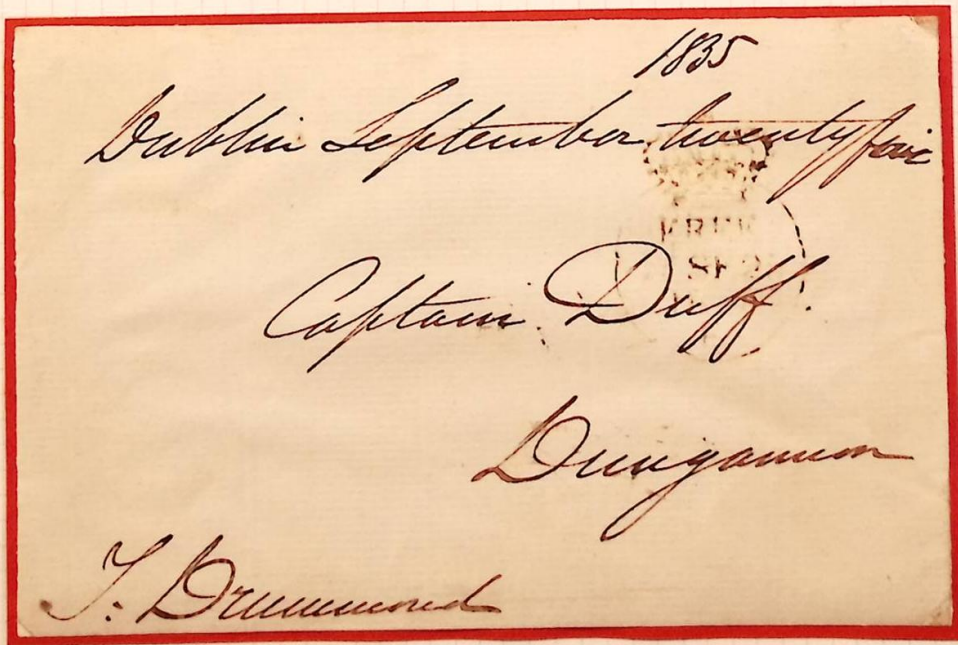 1835
Dublin September twenty five
FREE
SE 2
Captain Duff.
Dungannon
T. Drummond